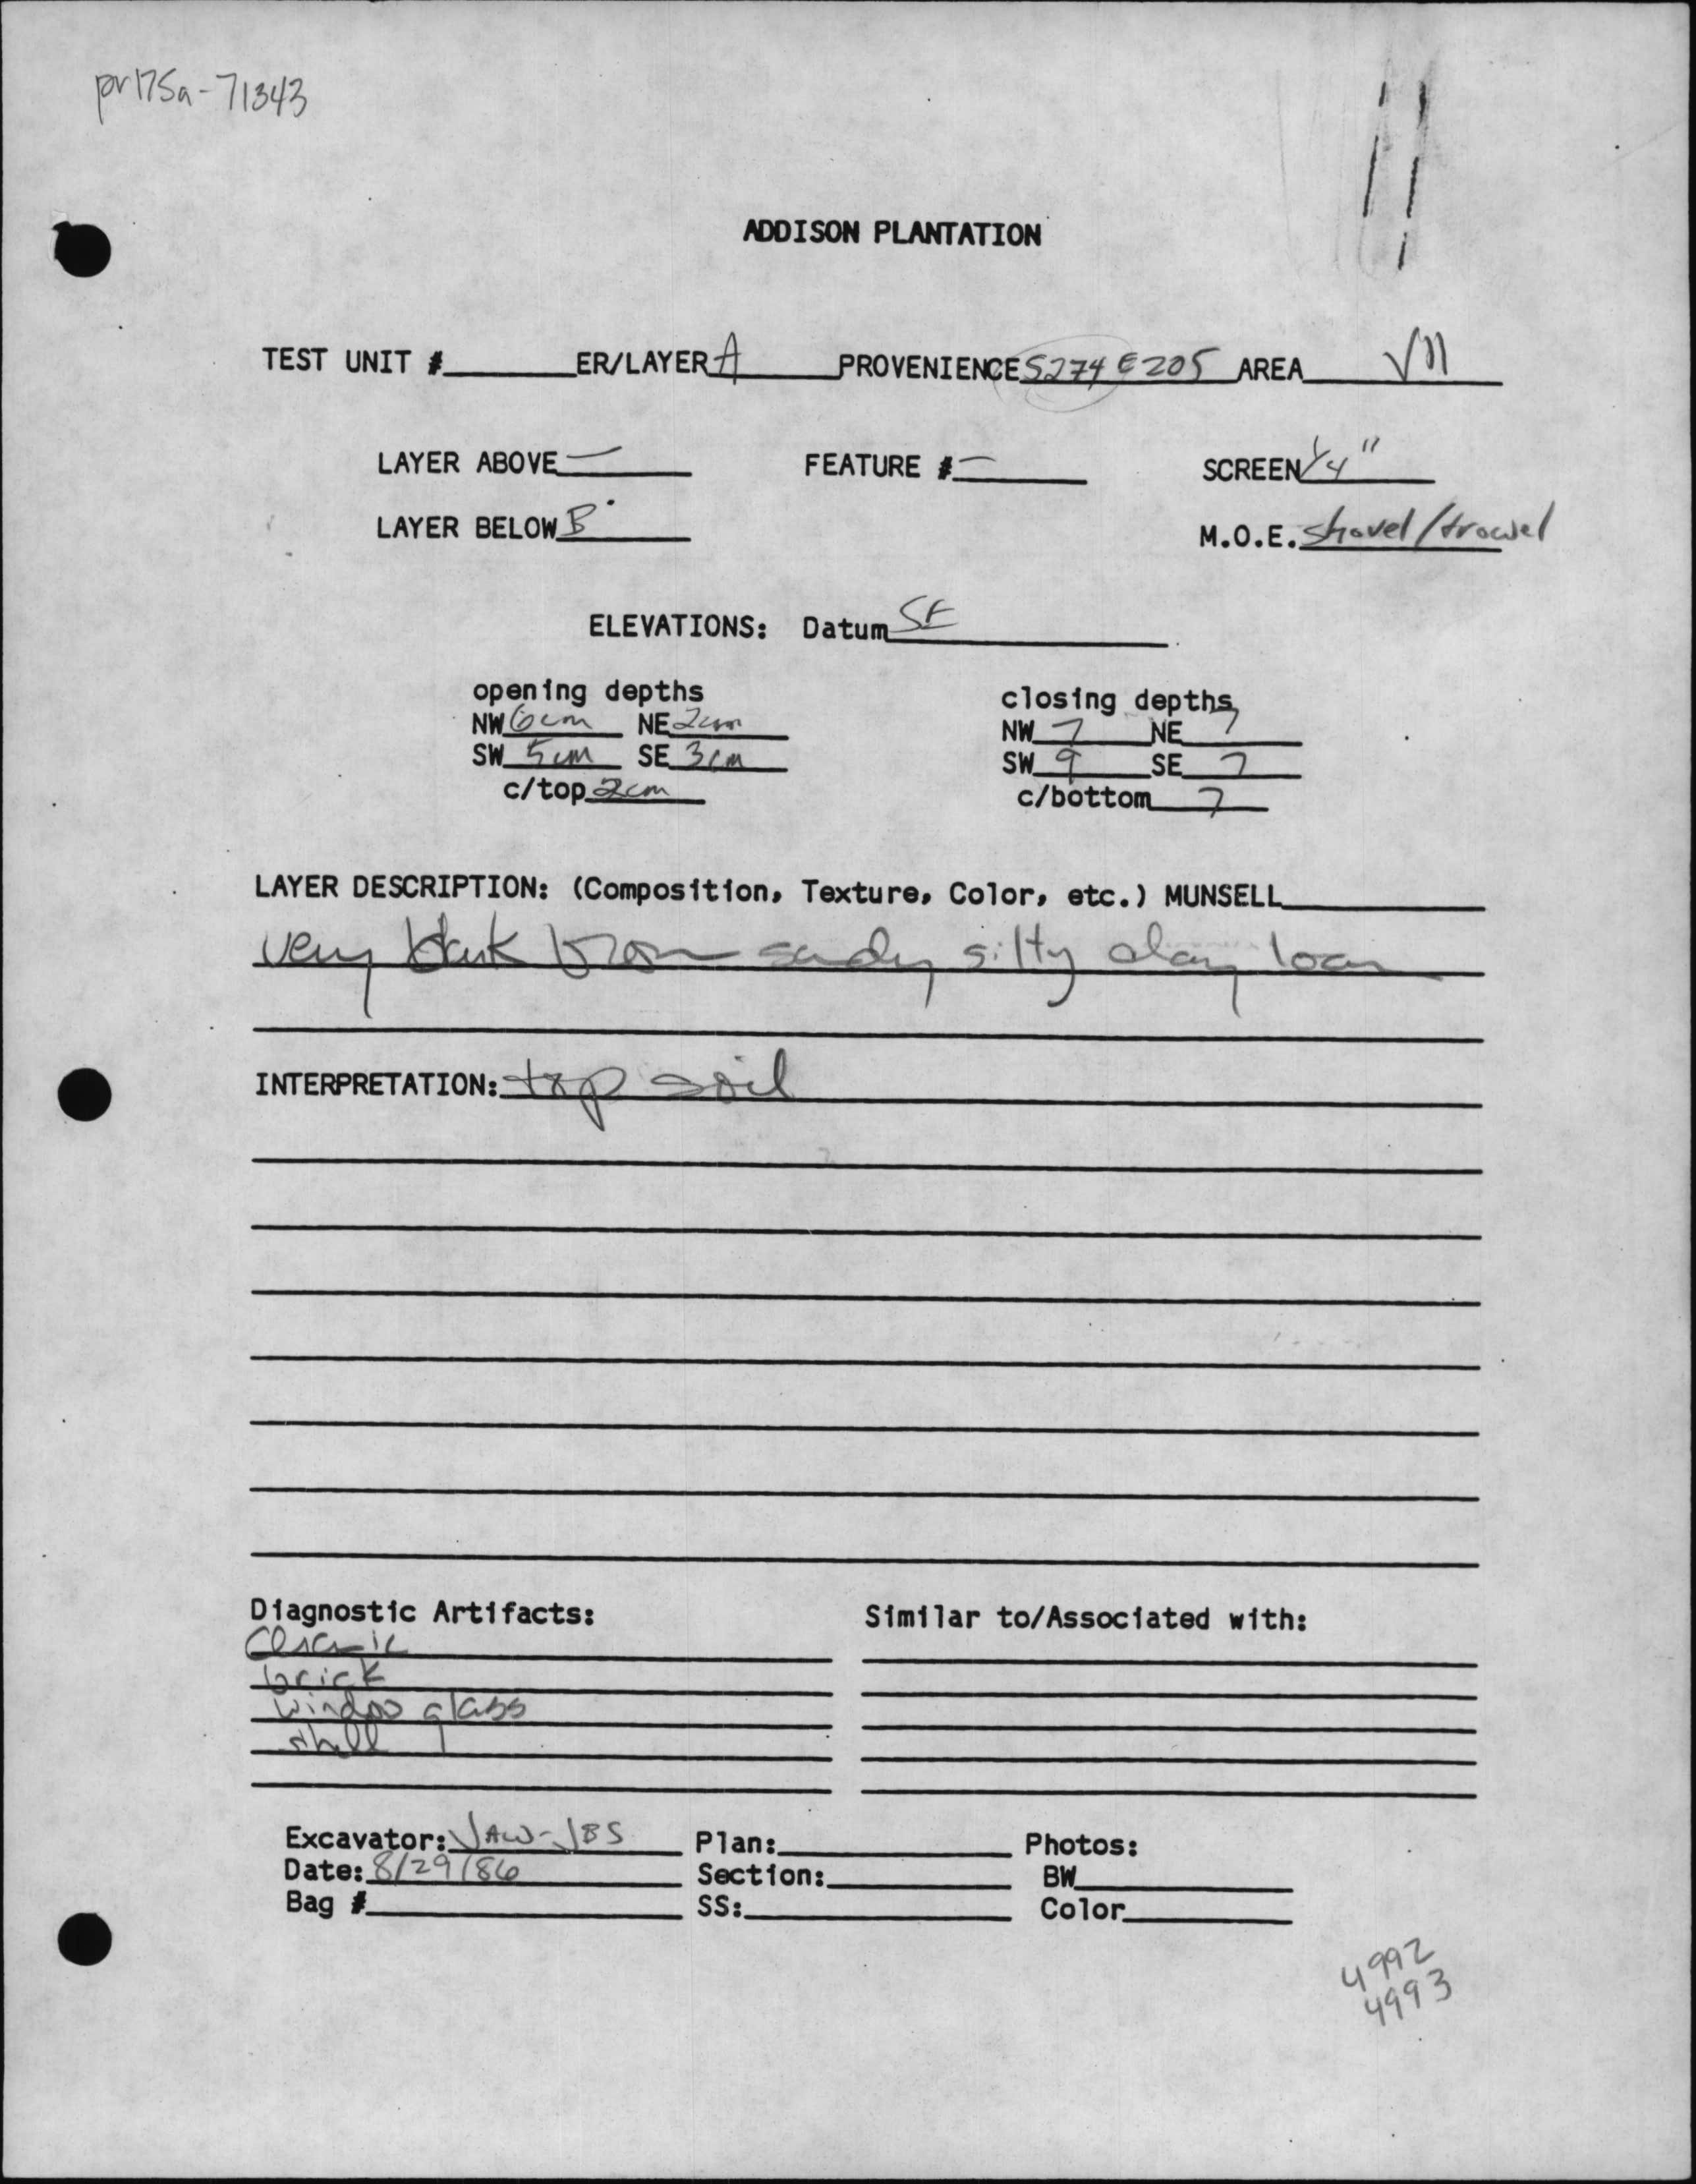 pr175a-71343
ADDISON PLANTATION
TEST UNIT # ER/LAYER A PROVENIENCE S274 E205 AREA VII
LAYER ABOVE — FEATURE # — SCREEN 1/4"
LAYER BELOW B M.O.E. shovel/trowel
ELEVATIONS: Datum SE
opening depths closing depths
NW 6cm NE 2cm NW 7 NE 7
SW 5cm SE 3cm SW 9 SE 7
c/top 2cm c/bottom 7
LAYER DESCRIPTION: (Composition, Texture, Color, etc.) MUNSELL
very dark brown sandy silty clay loam
INTERPRETATION: top soil
Diagnostic Artifacts: Similar to/Associated with:
Ceramic
brick
window glass
shell
Excavator: JAW-JBS Plan: Photos:
Date: 8/29/86 Section: BW
Bag # SS: Color
4992
4993